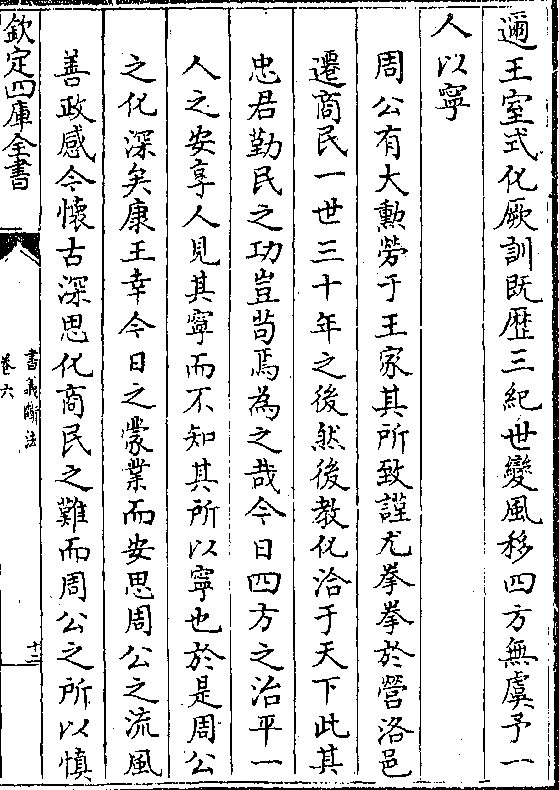 邇王室式化厥訓既歴三紀世變風移四方無虞予一
人以寧
周公有大勲勞于王家其所致謹尤拳拳於營洛邑
遷商民一世三十年之後然後教化洽于天下此其
忠君勤民之功豈茍焉為之哉今日四方之治平一
人之安享人見其寧而不知其所以寧也於是周公
之化深矣康王幸今日之䝉業而安思周公之流風
善政感今懷古深思化商民之難而周公之所以慎
欽定四庫全書
書義斷法
卷六
十二